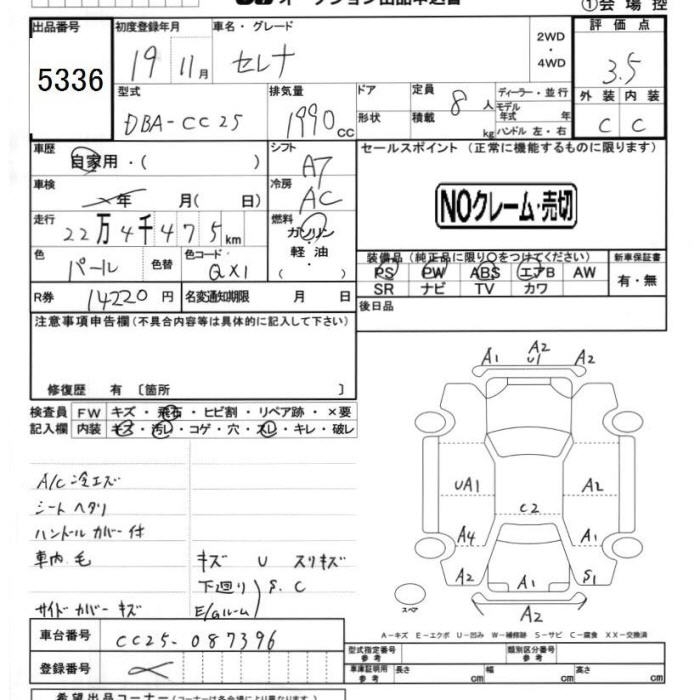 オークション出品申込書
①会場控
出品番号 5336
初度登録年月 19 11月
車名・グレード セレナ
2WD・4WD
評価点 3.5
外装 C 内装 C
型式 DBA-CC25
排気量 1990cc
ドア
形状
定員 8人
積載 kg
ディーラー・並行
モデル年式 年
ハンドル 左・右
車歴 自家用・( )
シフト A7
セールスポイント (正常に機能するものに限ります)
NOクレーム・売切
車検 年 月( 日)
冷房 AC
走行 22万4千475km
燃料 ガソリン・軽油 ( )
色 パール 色替
色コード QX1
装備品 (純正品に限り○をつけてください)
新車保証書
PS PW ABS エアB AW
SR ナビ TV カワ
有・無
R券 14220円
名変通知期限 月 日
後日品
注意事項申告欄(不具合内容等は具体的に記入して下さい)
修復歴 有 〔箇所 〕
検査員記入欄
FW キズ・飛石・ヒビ割・リペア跡・×要
内装 キズ・汚レ・コゲ・穴・スレ・キレ・破レ
A/C 冷エズ
シート ヘタリ
ハンドル カバー 付
車内 毛
キズ U スリキズ
下廻り
E/gルーム
S.C
サイド カバー キズ
A1 A2 U1 A2
UA1 A2
C2
A4 A1
A2 A1 S1
A2
スペア
A-キズ E-エクボ U-凹み W-補修跡 S-サビ C-腐食 XX-交換済
車台番号 CC25-087396
登録番号
型式指定番号 参考
類別区分番号 参考
車庫証明用 参考 長さ cm 幅 cm 高さ cm
希望出品コーナー(コーナーは各会場により異なります)